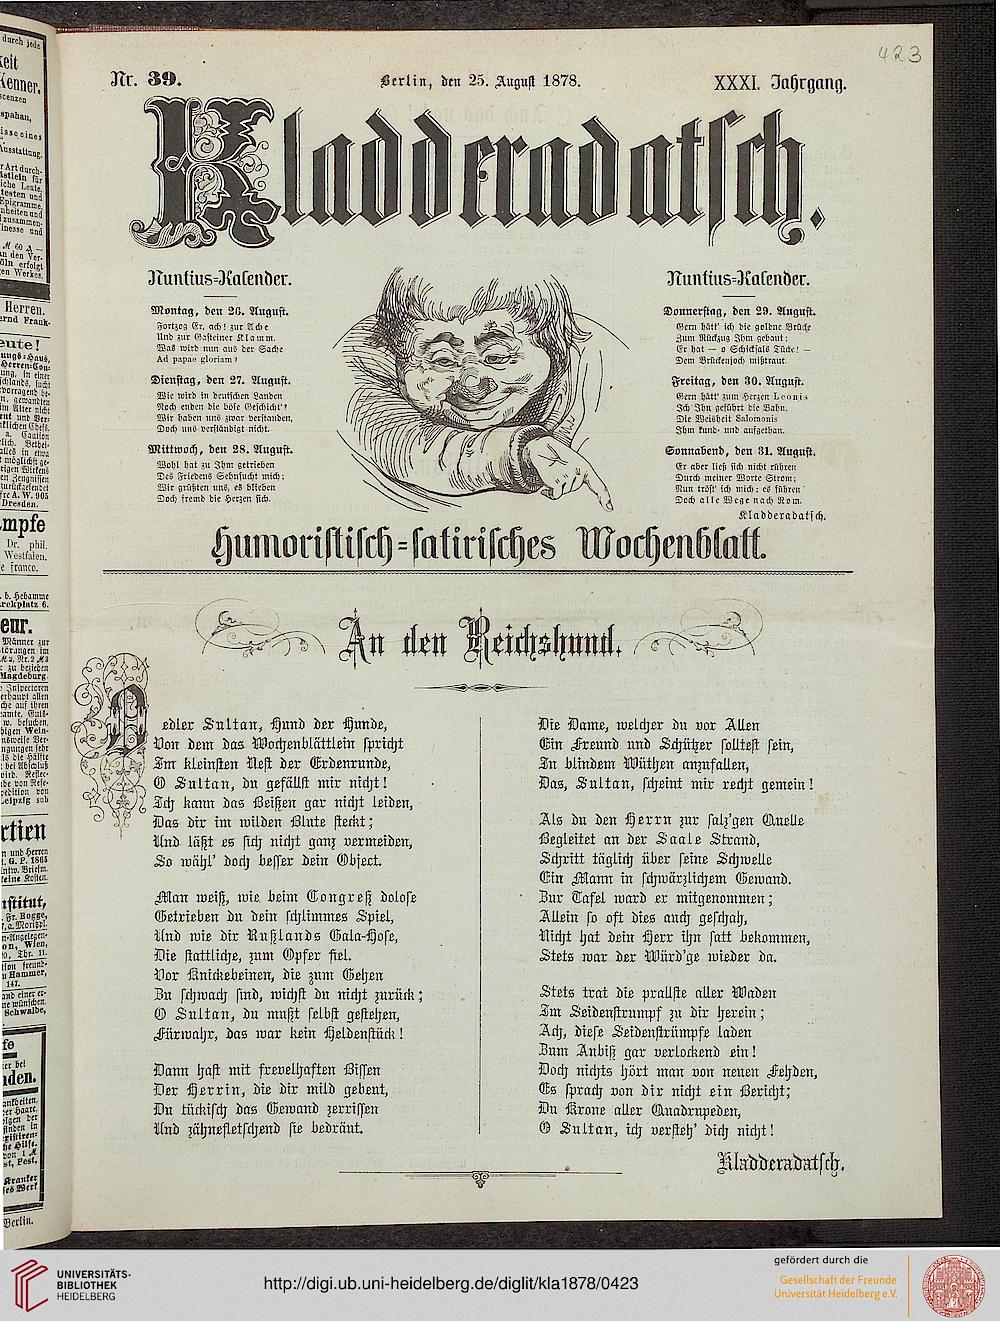 423
Nr. 39.
Berlin, den 25. August 1878.
XXXI. Jahrgang.
Kladderadatsch.
Nuntius-Kalender.
Montag, den 26. August.
Fortzog Er, ach! zur Ache
Und zur Gasteiner Klamm.
Was wird nun aus der Sache
Ad papae gloriam?
Dienstag, den 27. August.
Wie wird in deutschen Landen
Noch enden die böse Geschicht'?
Wir haben uns zwar verstanden,
Doch uns verständigt nicht.
Mittwoch, den 28. August.
Wohl hat zu Ihm getrieben
Des Friedens Sehnsucht mich;
Wir grüßten uns, es blieben
Doch fremd die Herzen sich.
Nuntius-Kalender.
Donnerstag, den 29. August.
Gern hätt' ich die goldne Brücke
Zum Rückzug Ihm gebaut;
Er hat — o Schicksals Tücke! —
Dem Brückenjoch mißtraut.
Freitag, den 30. August.
Gern hätt' zum Herzen Leonis
Ich Ihn geführt die Bahn.
Die Weisheit Salomonis
Ihm kund- und aufgethan.
Sonnabend, den 31. August.
Er aber ließ sich nicht rühren
Durch meiner Worte Strom;
Nun tröst' ich mich: es führen
Doch alle Wege nach Rom.
Kladderadatsch.
Humoristisch-satirisches Wochenblatt.
An den Reichshund.
O edler Sultan, Hund der Hunde,
Von dem das Wochenblättlein spricht
Im kleinsten Nest der Erdenrunde,
O Sultan, du gefällst mir nicht!
Ich kann das Beißen gar nicht leiden,
Das dir im wilden Blute steckt;
Und läßt es sich nicht ganz vermeiden,
So wähl' doch besser dein Object.
Man weiß, wie beim Congreß dolose
Getrieben du dein schlimmes Spiel,
Und wie dir Rußlands Gala-Hose,
Die stattliche, zum Opfer fiel.
Vor Knickebeinen, die zum Gehen
Zu schwach sind, wichst du nicht zurück;
O Sultan, du mußt selbst gestehen,
Fürwahr, das war kein Heldenstück!
Dann hast mit frevelhaften Bissen
Der Herrin, die dir mild gebeut,
Du tückisch das Gewand zerrissen
Und zähnefletschend sie bedräut.
Die Dame, welcher du vor Allen
Ein Freund und Schützer solltest sein,
In blindem Wüthen anzufallen,
Das, Sultan, scheint mir recht gemein!
Als du den Herrn zur salz'gen Quelle
Begleitet an der Saale Strand,
Schritt täglich über seine Schwelle
Ein Mann in schwärzlichem Gewand.
Zur Tafel ward er mitgenommen;
Allein so oft dies auch geschah,
Nicht hat dein Herr ihn satt bekommen,
Stets war der Würd'ge wieder da.
Stets trat die prallste aller Waden
Im Seidenstrumpf zu dir herein;
Ach, diese Seidenstrümpfe laden
Zum Anbiß gar verlockend ein!
Doch nichts hört man von neuen Fehden,
Es sprach von dir nicht ein Bericht;
Du Krone aller Quadrupeden,
O Sultan, ich versteh' dich nicht!
Kladderadatsch.
UNIVERSITÄTS-
BIBLIOTHEK
HEIDELBERG
http://digi.ub.uni-heidelberg.de/diglit/kla1878/0423
gefördert durch die
Gesellschaft der Freunde
Universität Heidelberg e.V.